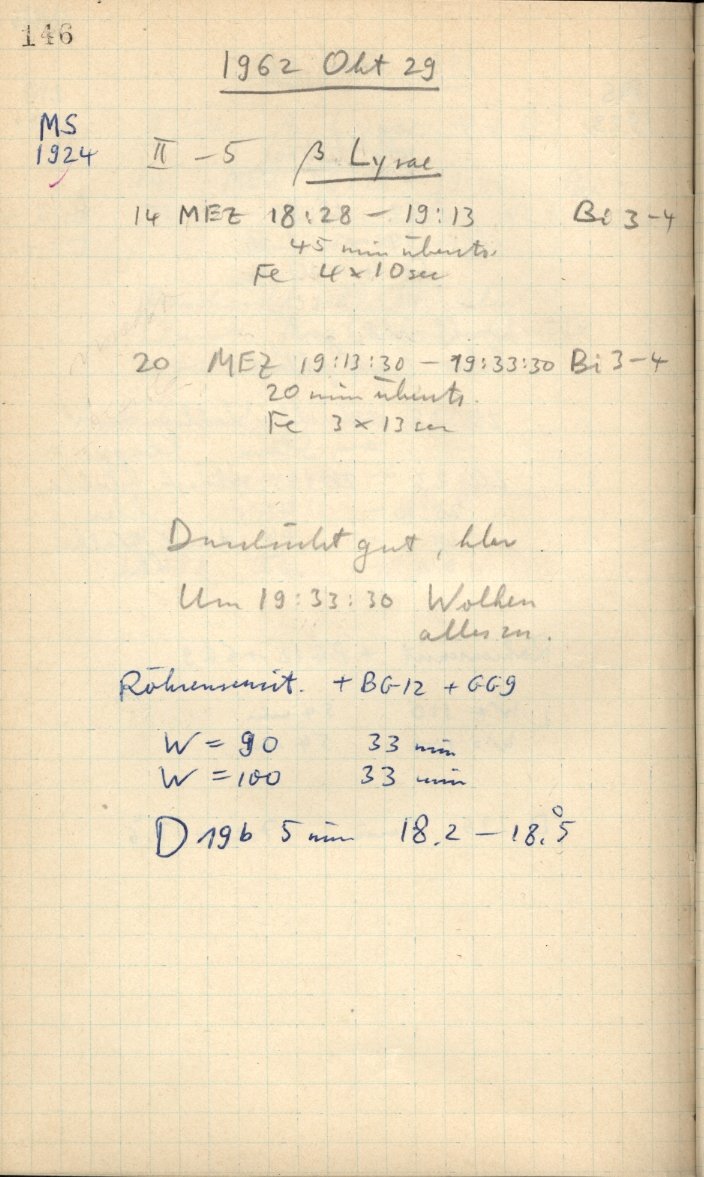 146
1962 Okt 29
MS
1924
II - 5 β Lyrae
14 MEZ 18:28 - 19:13 Bi 3-4
45 min überto.
Fe 4 x 10 sec
20 MEZ 19:13:30 - 19:33:30 Bi 3-4
20 min
Fe 3 x 13 sec
Durchsicht gut, klar
Um 19:33:30 Wolken
alles zu.
Röhrensensit. + BG12 + GG9
W = 90 33 min
W = 100 33 min
D 19b 5 min 18.2 - 18.°5